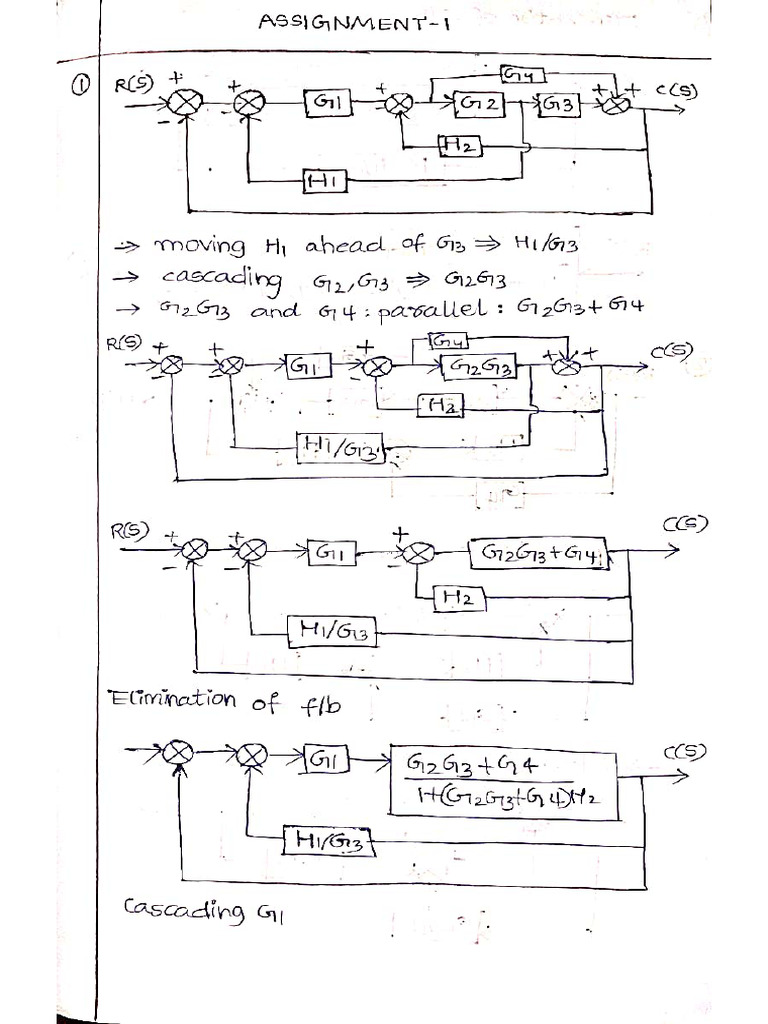 ASSIGNMENT-1
① R(S) + + + G4 + + C(S)
G1 G2 G3
- - -
H2
H1
→ moving H1 ahead of G3 ⇒ H1/G3
→ cascading G2, G3 ⇒ G2G3
→ G2G3 and G4 : parallel : G2G3 + G4
R(S) + + + G4 + + C(S)
G1 G2G3
- - -
H2
H1/G3
R(S) + + + C(S)
G1 G2G3 + G4
- - -
H2
H1/G3
Elimination of f/b
G1 G2G3 + G4 C(S)
1+(G2G3+G4)H2
H1/G3
Cascading G1